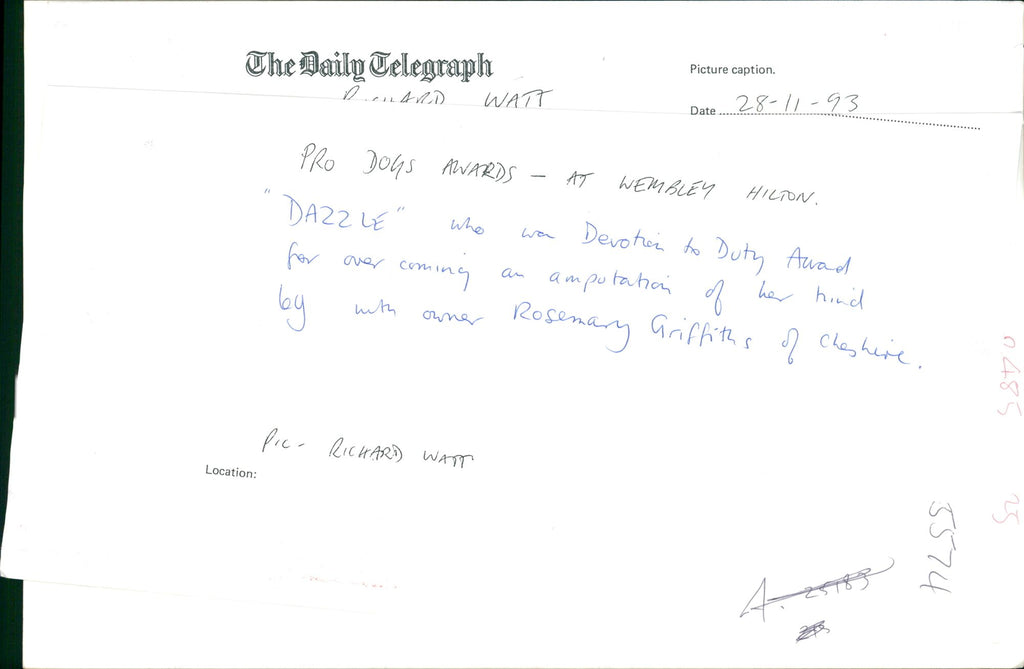 The Daily Telegraph
Picture caption.
RICHARD WATT
Date 28-11-93
PRO DOGS AWARDS - AT WEMBLEY HILTON.
"DAZZLE" who won Devotion to Duty Award
for over coming an amputation of her hind
leg with owner Rosemary Griffiths of Cheshire.
Pic- RICHARD WATT
Location:
5574
A.